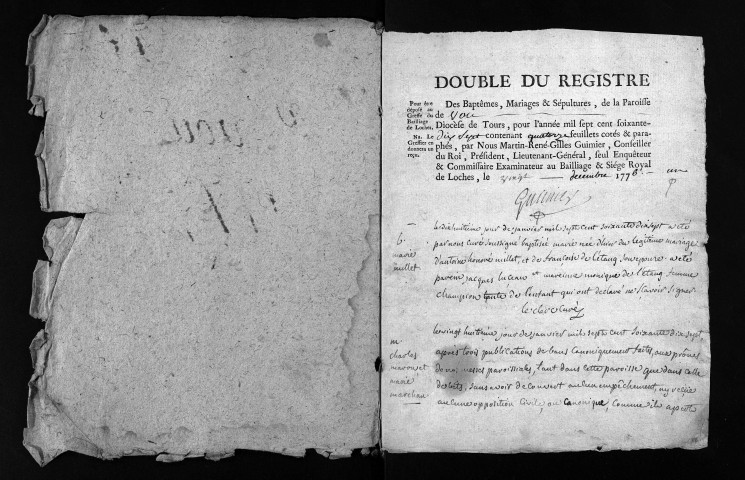 DOUBLE DU REGISTRE
Pour être
déposé au
Greffe du
Bailliage
de Loches.
Na. Le
Greffier en
donnera un
reçu.
Des Baptêmes, Mariages & Sépultures, de la Paroisse
de Vou
Diocèse de Tours, pour l'année mil sept cent soixante-
dix sept contenant quatorze feuillets cotés & para-
phés, par Nous Martin-René-Gilles Guimier, Conseiller
du Roi, Président, Lieutenant-Général, seul Enquêteur
& Commissaire Examinateur au Bailliage & Siége Royal
de Loches, le vingt decembre 1776.
Guimier
b.
marie
millet
le dixhuitieme jour de janvier mil sept cent soixante dix sept a été
par nous curé soussigné baptisée marie née d'hier du légitime mariage
d'antoine honoré millet, et de françoise de létang son epouse a été
parein jacques luceau mareine monique de létang femme
champion tante de l'enfant qui ont déclaré ne sçavoir signer
leclerc curé
m
charles
et
marie
marchau
le vingt huitieme jour de janvier mil sept cent soixante dix sept,
après trois publications de bans canoniquement faites, aux prônes
de nos messes paroissiales, tant dans cette paroisse que dans celle
de sans avoir decouvert aucun empêchement, ny reçu
aucune opposition Civile, ou Canonique, comme il a